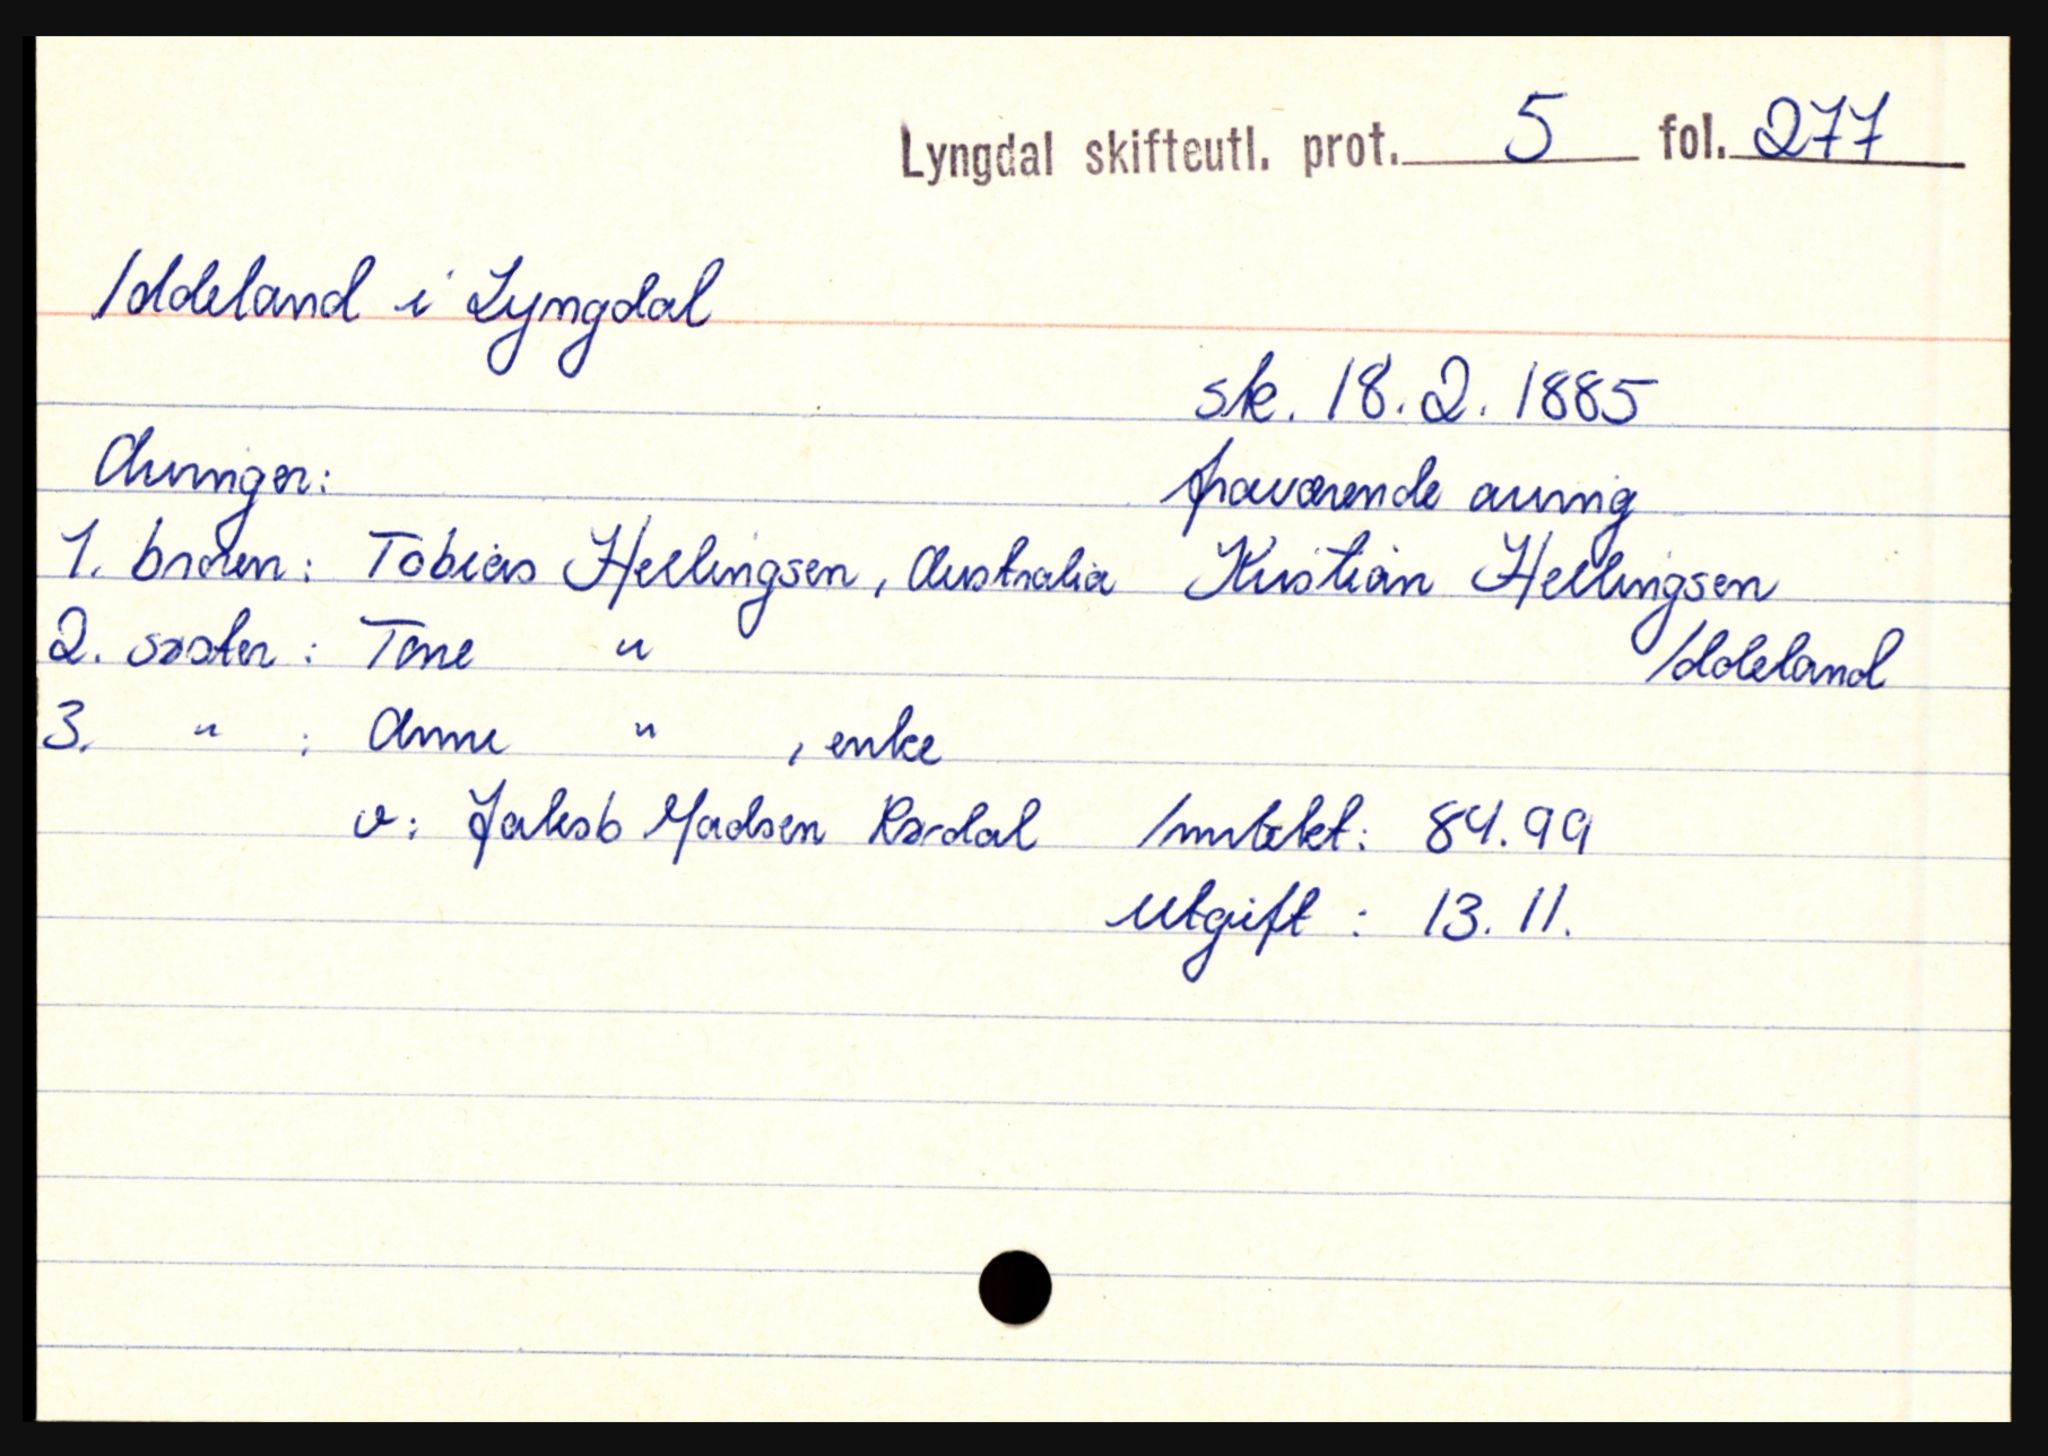 Lyngdal skifteutl. prot. 5 fol. 277
Iddeland i Lyngdal
sk. 18.2.1885
Arvinger:
fraværende arving
1. broren: Tobias Hellingsen, Australia
Kristian Hellingsen
Iddeland
2. søster: Tone "
3. " : Anne " , enke
v: Jakob Madsen Rørdal
Inntekt: 84.99
Utgift : 13.11.